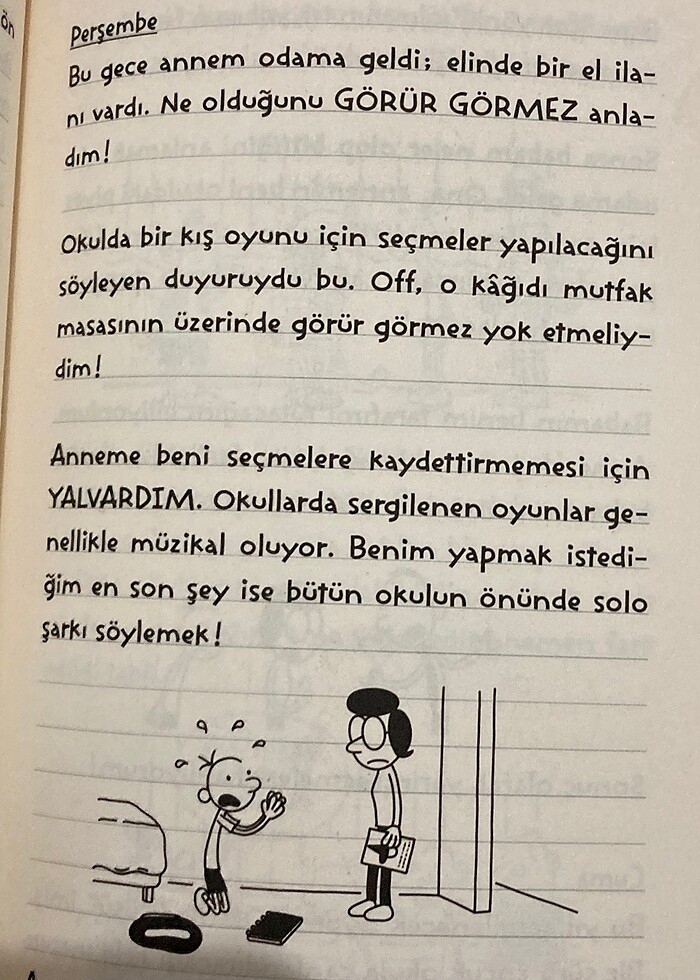 ön
Perşembe
Bu gece annem odama geldi; elinde bir el ila-
nı vardı. Ne olduğunu GÖRÜR GÖRMEZ anla-
dım!
Okulda bir kış oyunu için seçmeler yapılacağını
söyleyen duyuruydu bu. Off, o kâğıdı mutfak
masasının üzerinde görür görmez yok etmeliy-
dim!
Anneme beni seçmelere kaydettirmemesi için
YALVARDIM. Okullarda sergilenen oyunlar ge-
nellikle müzikal oluyor. Benim yapmak istedi-
ğim en son şey ise bütün okulun önünde solo
şarkı söylemek!